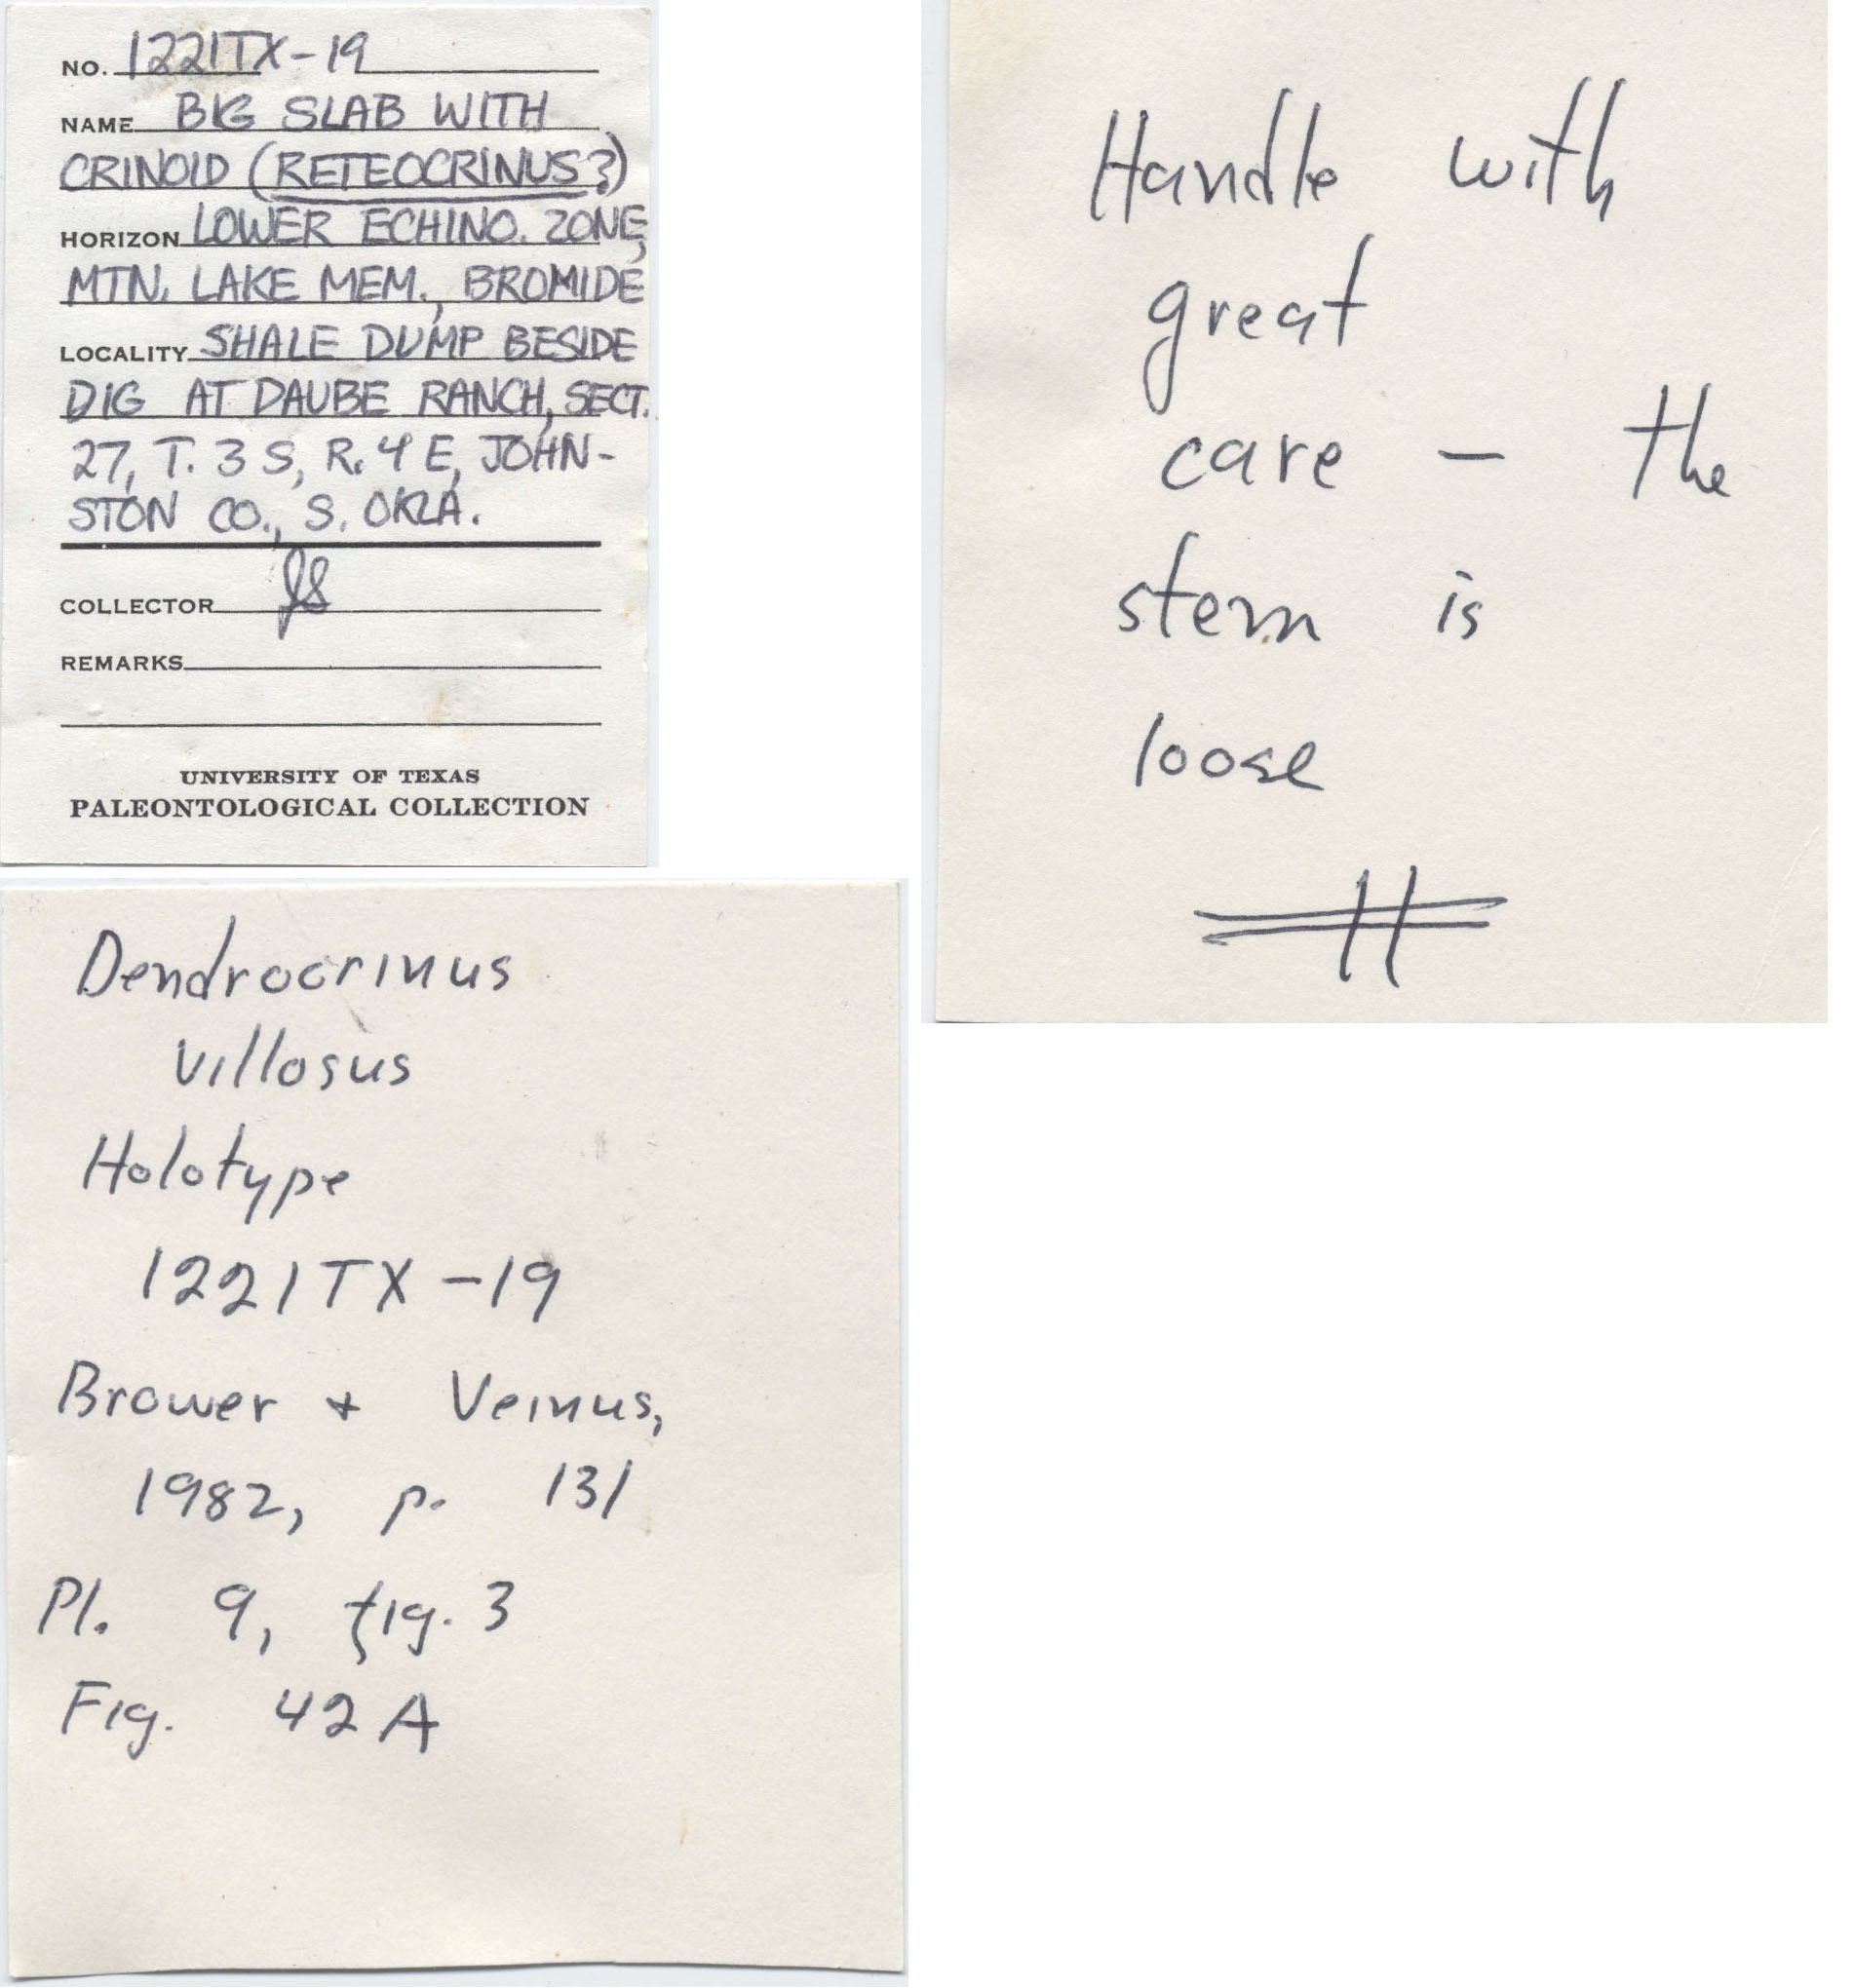 NO. 1221TX-19
NAME BIG SLAB WITH
CRINOID (RETEOCRINUS?)
HORIZON LOWER ECHINO. ZONE,
MTN. LAKE MEM., BROMIDE
LOCALITY SHALE DUMP BESIDE
DIG AT DAUBE RANCH, SECT.
27, T. 3 S, R. 4 E, JOHN-
STON CO., S. OKLA.
COLLECTOR JS
REMARKS
UNIVERSITY OF TEXAS
PALEONTOLOGICAL COLLECTION
Handle with
great
care – the
stem is
loose
Dendrocrinus
villosus
Holotype
1221TX-19
Brower + Veinus,
1982, p. 131
Pl. 9, fig. 3
Fig. 42A